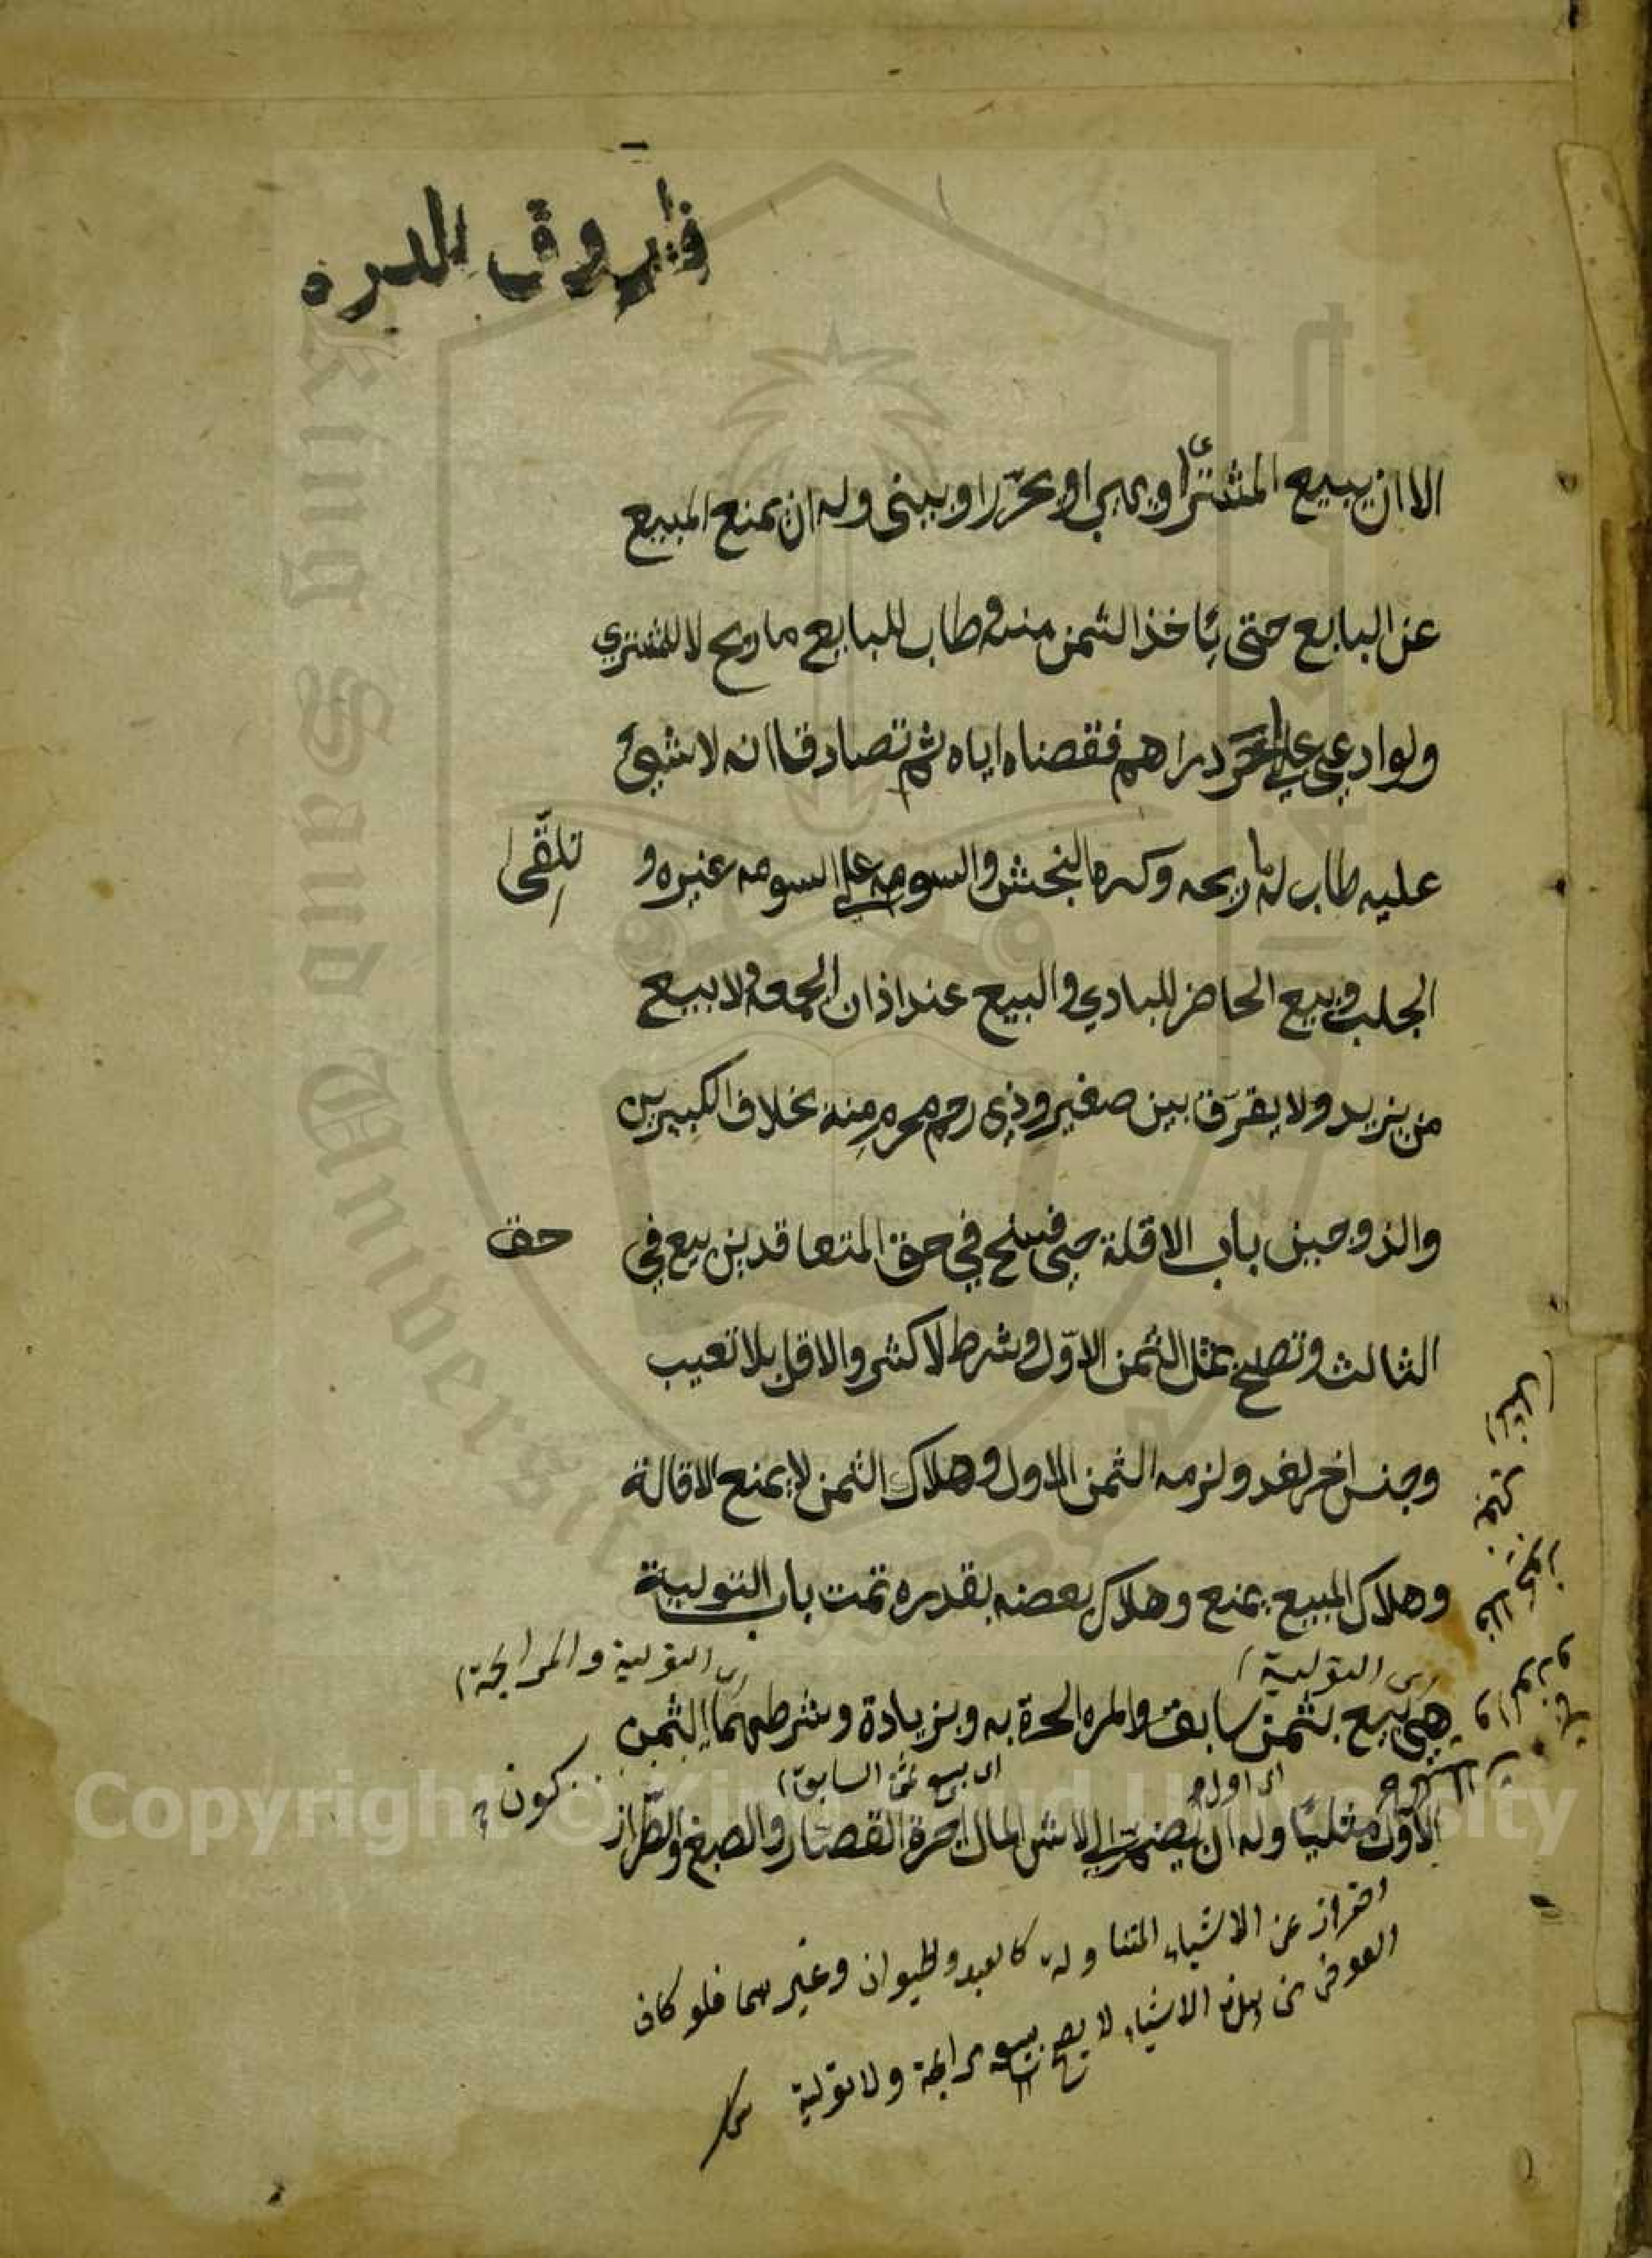 الا ان يبيع المشترى او يهب او يحرّر او يبنى وله ان يمنع المبيع
عن البايع حتى ئاخذ الثمن منه وطاب للبايع ما ربح لا للمشتري
ولو ادعي علي اخر دراهم فقضاه اياه ثم تصادقا انه لا شيئ
عليه طاب له ما ربحه وكره النجش والسوم علي السوم غيره و تلقّى
الجلب وبيع الحاضر للبادي والبيع عند اذان الجمعة ولا بيع
من يزيد ولا يفرّق بين صغير وذي رحم محرم منه بخلاف الكبيرين
والزوجين باب الاقلة هي فسخ في حق المتعاقدين بيع في حق
الثالث وتصح بمثل الثمن الاوّل وشرط الاكثر والاقل بلا تعيب
وجنس اخر لغو ولزمه الثمن الاول وهلاك الثمن لا يمنع الاقالة
وهلاك المبيع يمنع وهلاك بعضه بقدره تمت باب التولية
اى التولية
اى التولية والمرابحة
هي بيع بثمن سابق والمرابحة به وبزيادة وشرطهما الثمن كون
الاوّل مثليا وله ان يضم الي الاس المال اجرة القصار والصبغ والطراز
احتراز عن الاشياء المتناوله كالعبد والحيوان وغيرهما فلو كان
العوض من هذه الاشياء لا يصح بيعه مرابحة ولا تولية